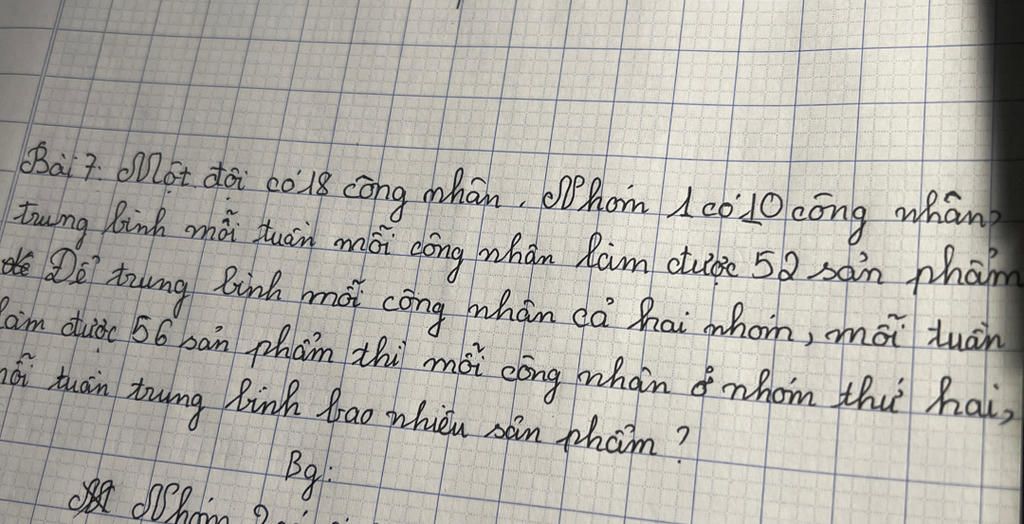 Bài 7: Một đội có 18 công nhân. Nhóm 1 có 10 công nhân,
trung bình mỗi tuần mỗi công nhân làm được 52 sản phẩm
Để trung bình mỗi công nhân cả hai nhóm, mỗi tuần
làm được 56 sản phẩm thì mỗi công nhân ở nhóm thứ hai,
mỗi tuần trung bình bao nhiêu sản phẩm?
Bg:
Nhóm 2